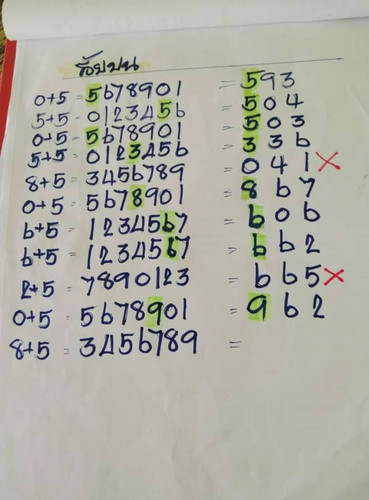 ร้อยบน
0+5 = 5678901 = 593
5+5 = 0123456 = 504
0+5 = 5678901 = 503
5+5 = 0123456 = 336
8+5 = 3456789 = 041 ×
0+5 = 5678901 = 867
6+5 = 1234567 = 606
6+5 = 1234567 = 662
2+5 = 7890123 = 665 ×
0+5 = 5678901 = 962
8+5 = 3456789 =